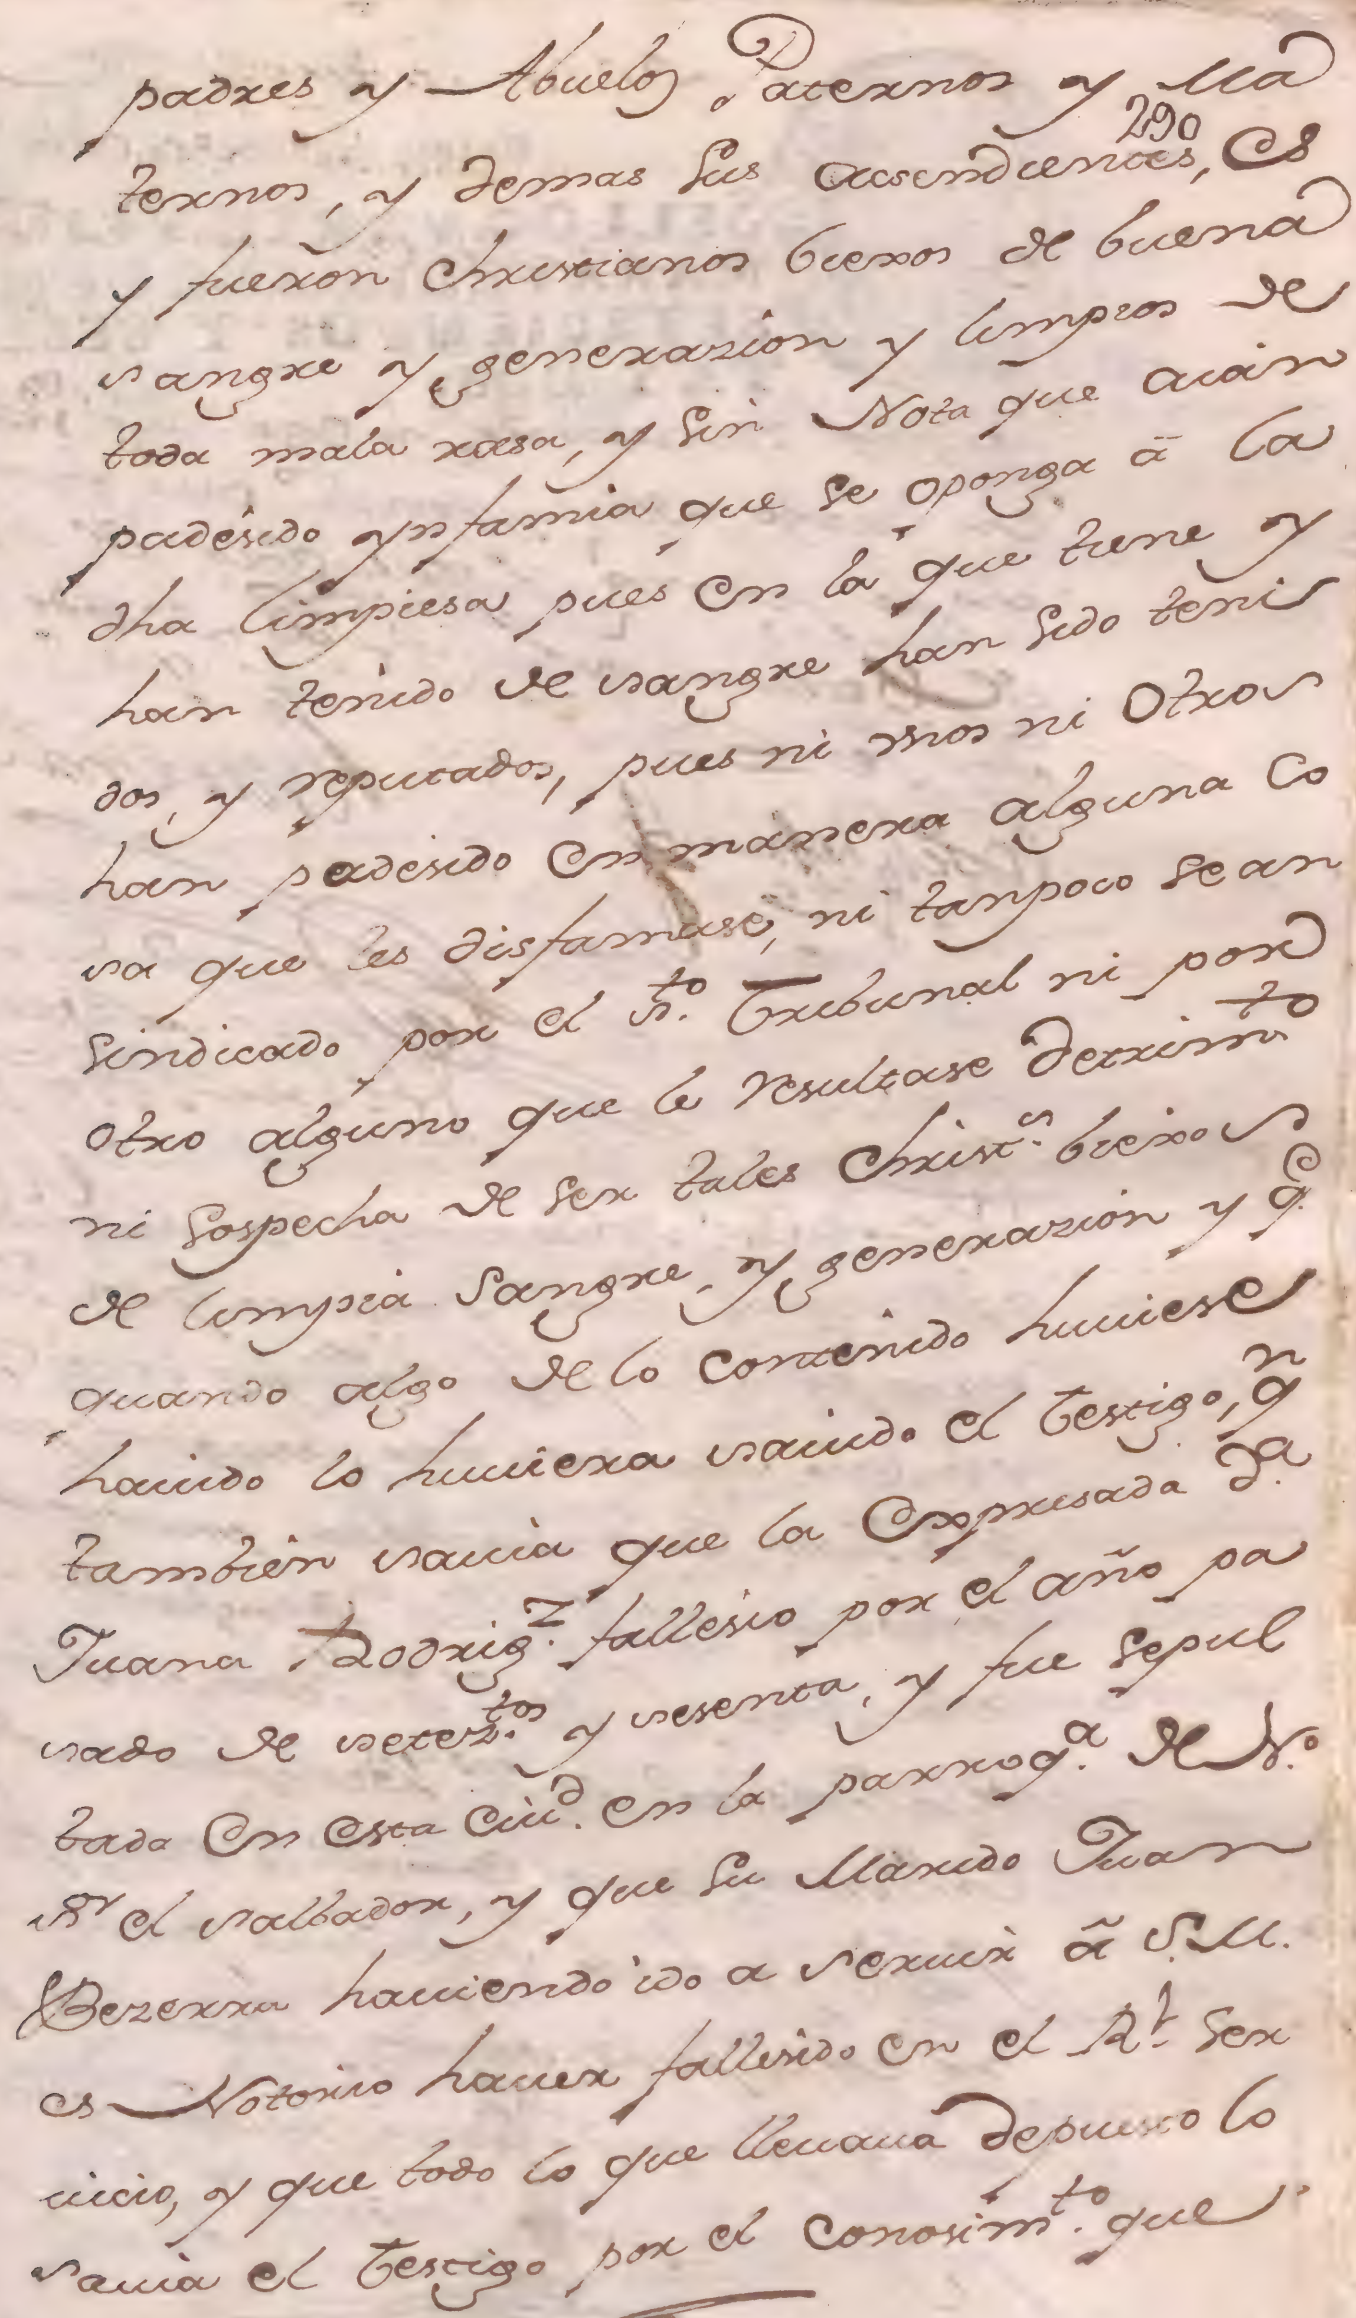 padres y Abuelos Paternos y Ma
290
ternos, y demas sus acsendientes, es
y fueron christianos biexos de buena
sangre y generazion y limpios de
toda mala rasa, y sin Nota que aian
padesido ynfamia que se oponga â la
dha limpiesa pues en la que tiene y
han tenido de sangre han sido teni
dos, y reputados, pues ni unos ni otros
han padesido en manera alguna co
sa que les disfamase, ni tanpoco sean
sindicado por el sto. Tribunal ni por
otro alguno que le resultase detrimto
ni sospecha de ser tales Christs. biexos
de limpia sangre, y generazion y qe
quando algo de lo contenido huuiese
hauido lo huuiera sauido el testigo, qn
tambien sauia que la expresada Da.
Juana Rodrigz. fallesio por el año pa
sado de seteztos. y sesenta, y fue sepul
tada en esta Ciud. en la parroqa. de No.
Sr el salbador, y que su Marido Juan
Bezerra hauiendo ido a seruir â S.M.
es Notorio hauer fallesido en el Rl. ser
uicio, y que todo lo que lleuaua depuesto lo
sauia el testigo por el conosimto. que